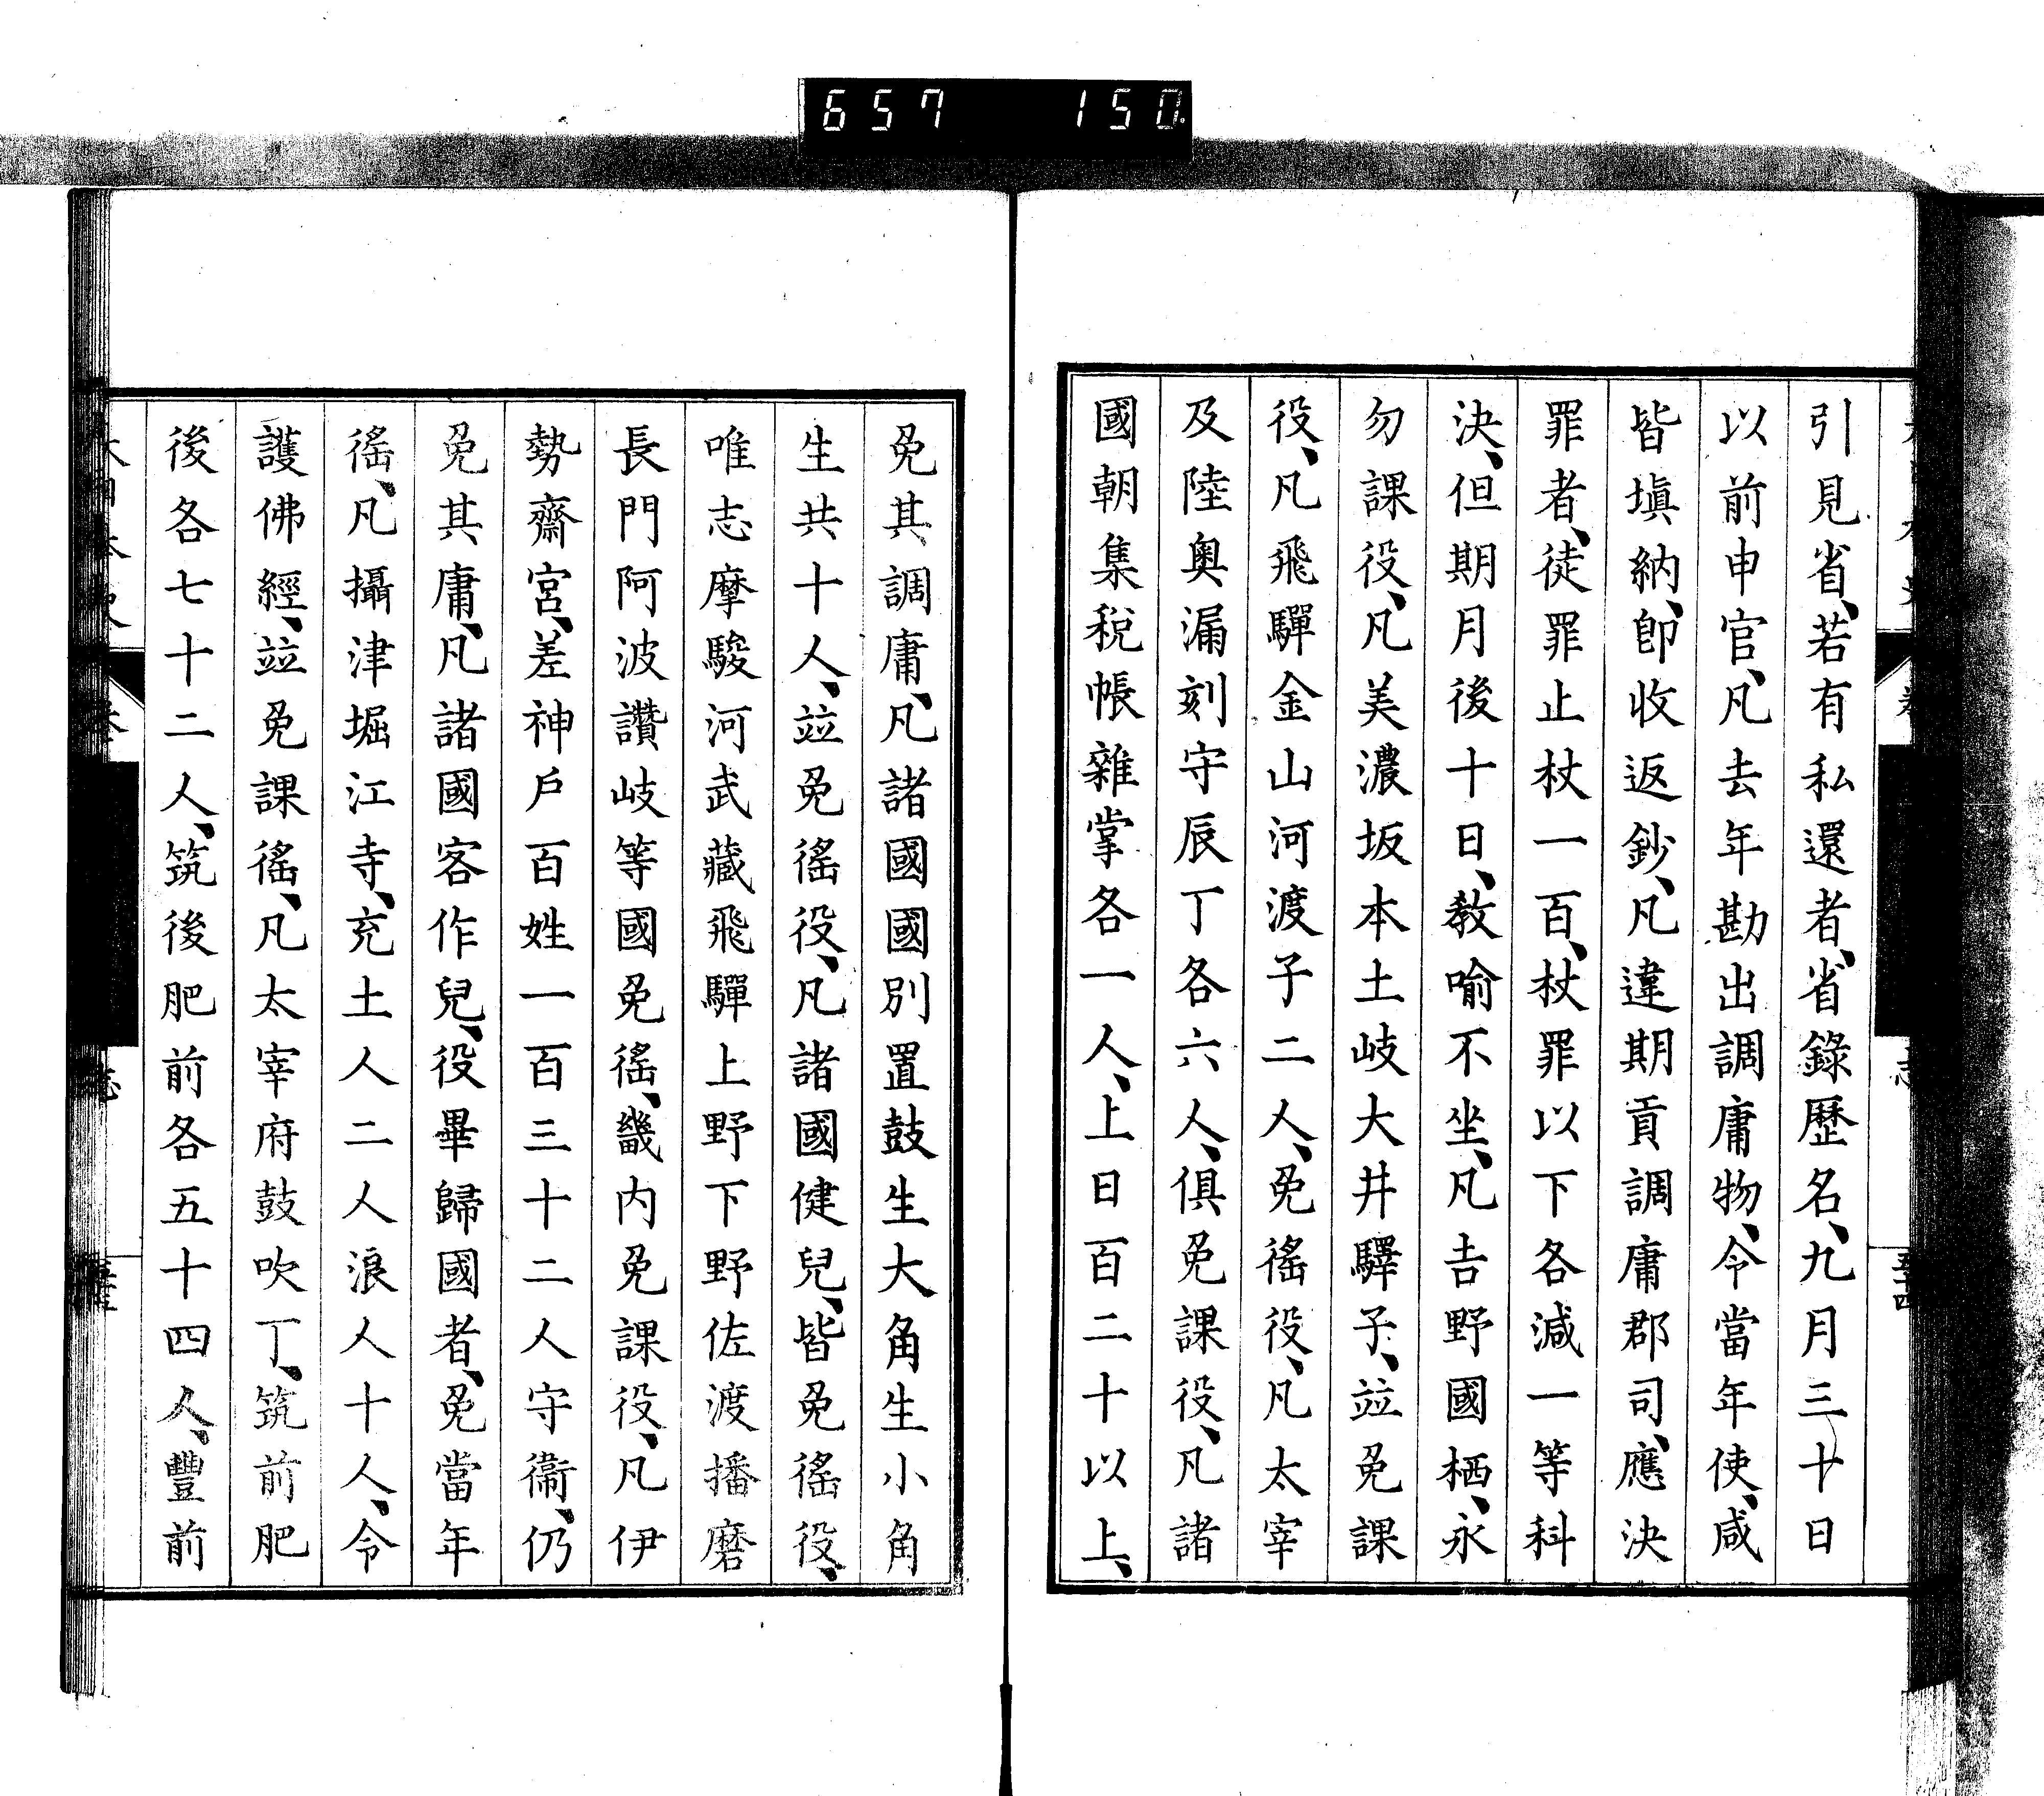 657 150
引見省、若有私還者、省錄歷名、九月三十日
以前申官、凡去年勘出調庸物、令當年使、咸
皆塡納、卽收返鈔、凡違期貢調庸郡司、應決
罪者、徒罪止杖一百、杖罪以下各減一等科
決、但期月後十日、敎喻不坐、凡吉野國栖、永
勿課役、凡美濃坂本土岐大井驛子、竝免課
役、凡飛驒金山河渡子二人、免徭役、凡太宰
及陸奧漏刻守辰丁各六人、俱免課役、凡諸
國朝集稅帳雜掌各一人、上日百二十以上、
免其調庸、凡諸國國別置鼓生大角生小角
生共十人、竝免徭役、凡諸國健兒、皆免徭役、
唯志摩駿河武藏飛驒上野下野佐渡播磨
長門阿波讚岐等國免徭、畿內免課役、凡伊
勢齋宮、差神戶百姓一百三十二人守衞、仍
免其庸、凡諸國客作兒、役畢歸國者、免當年
徭、凡攝津堀江寺、充土人二人浪人十人、令
護佛經、竝免課徭、凡太宰府鼓吹丁、筑前肥
後各七十二人、筑後肥前各五十四人、豐前